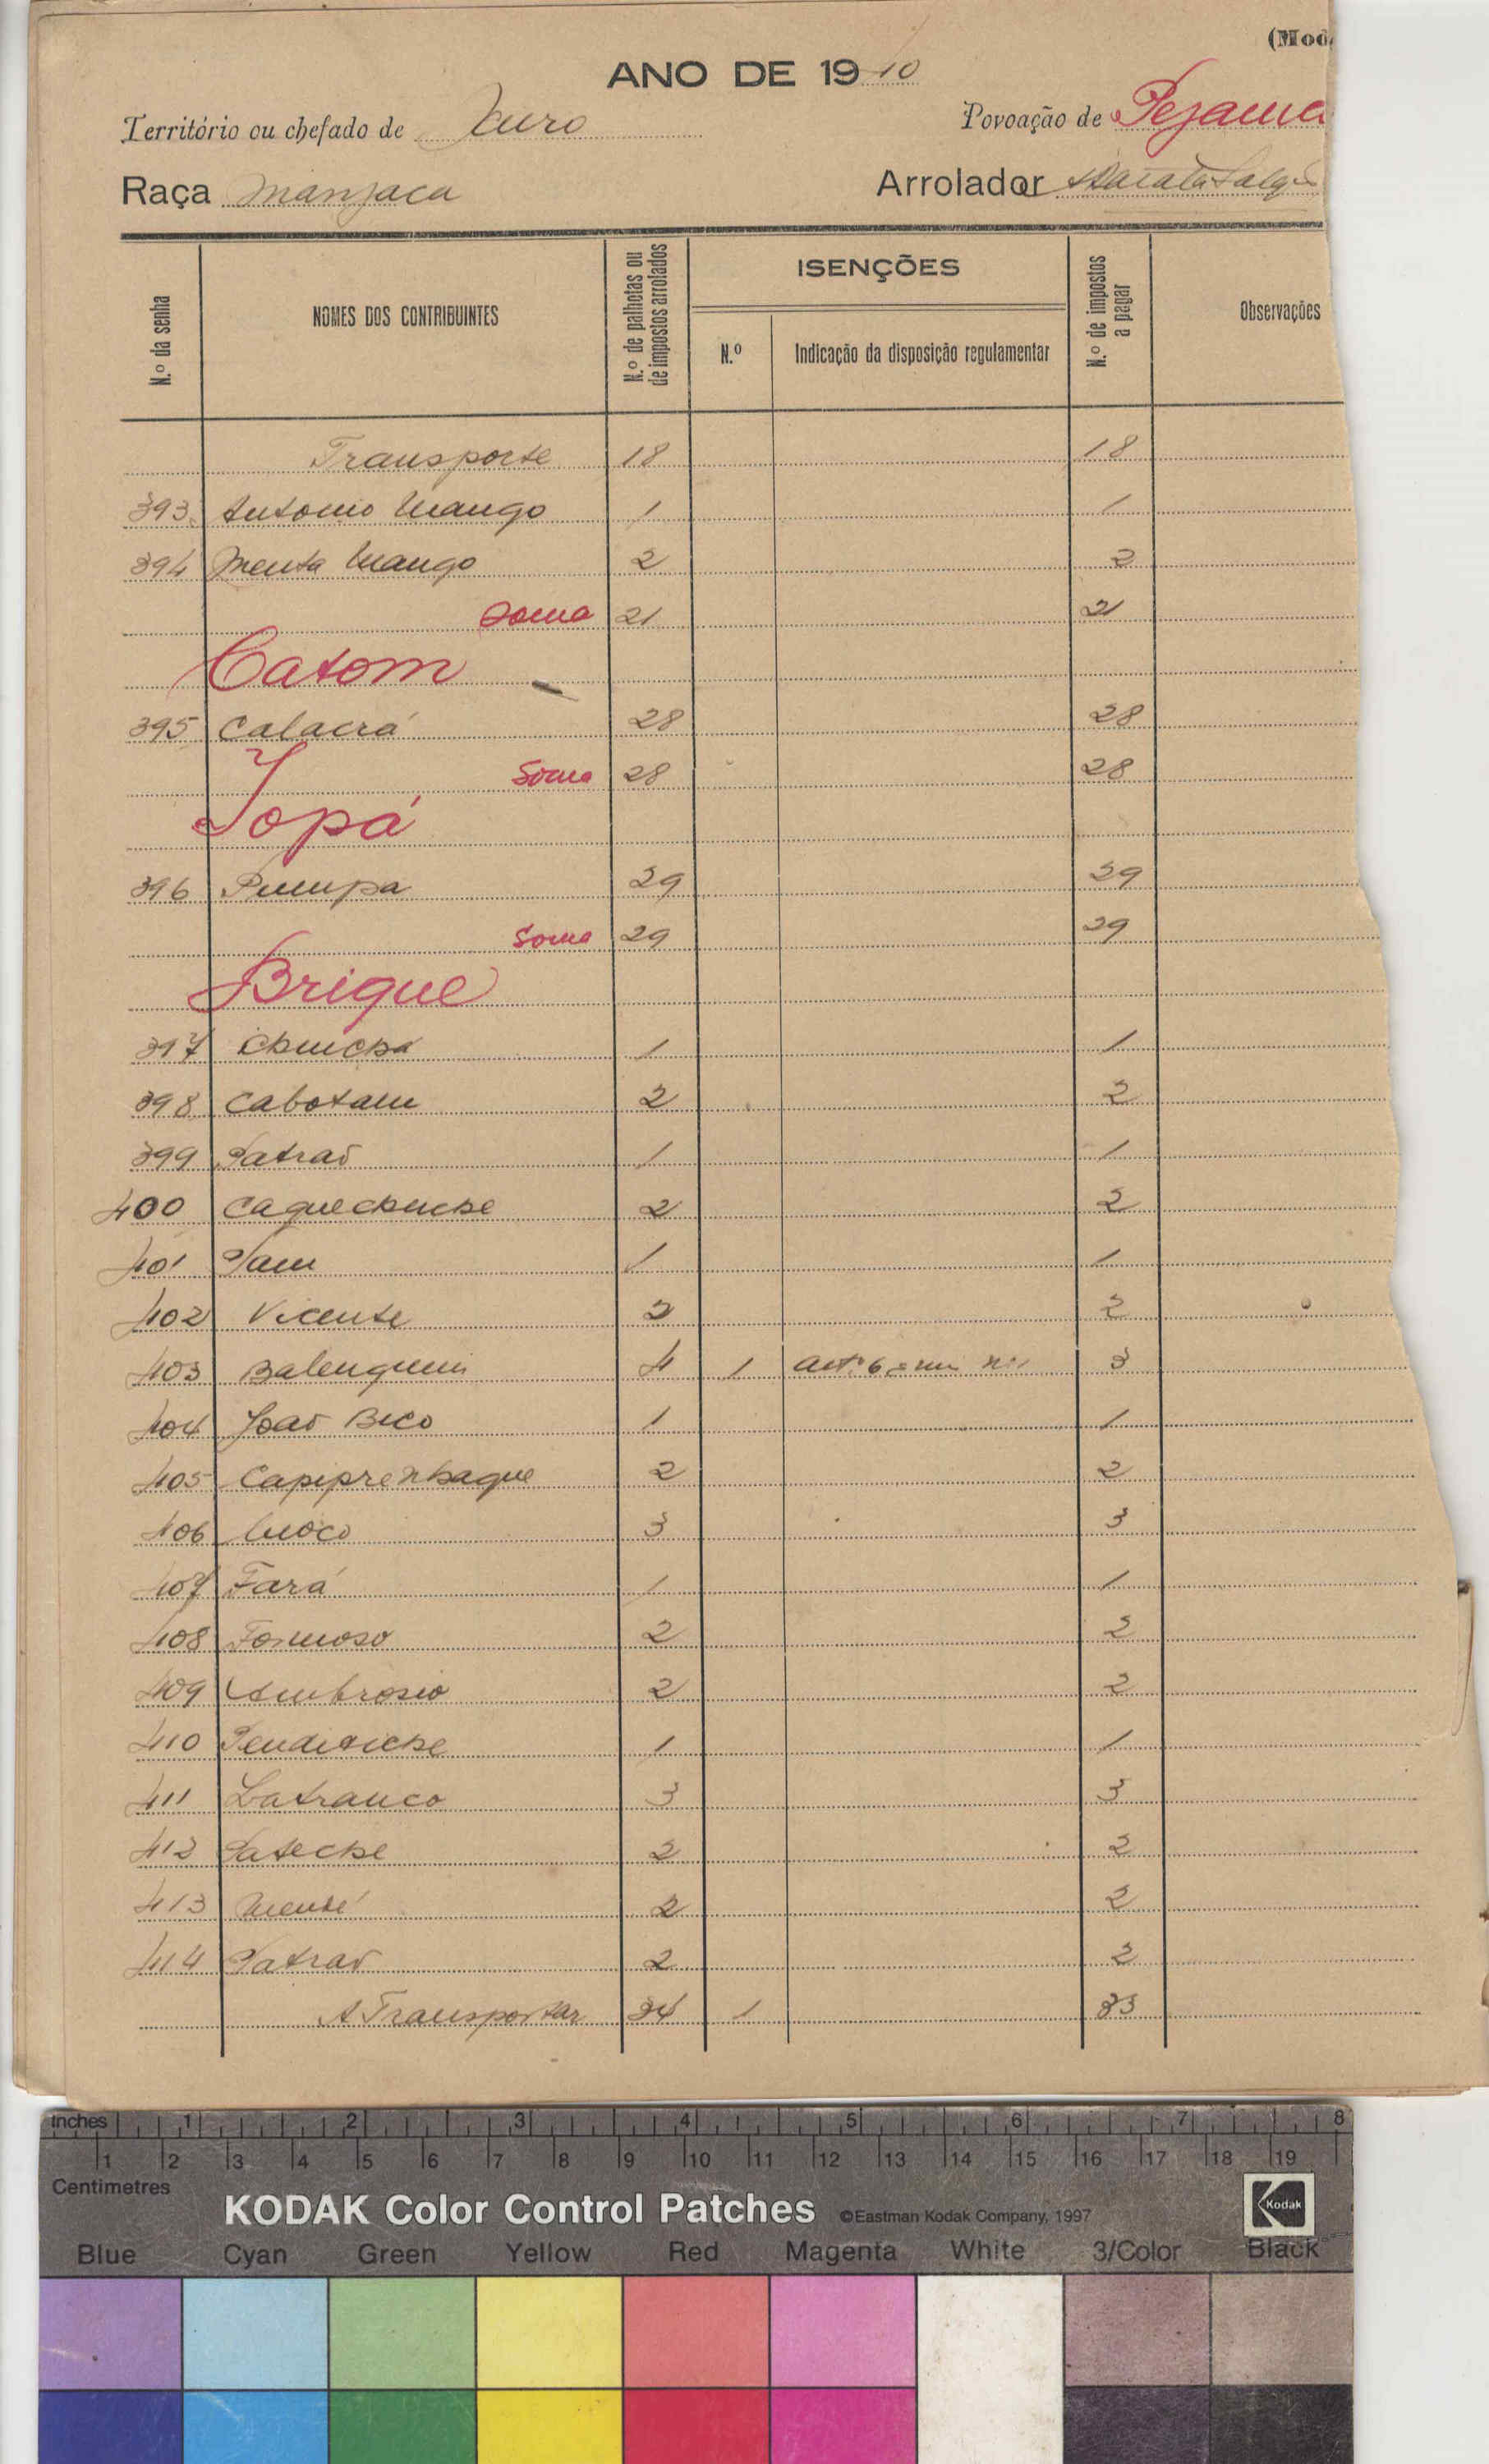 (Mod.
ANO DE 1910
Território ou chefado de Xuro
Povoação de Pejama
Raça Manjaca
Arrolador
N.º da senha
NOMES DOS CONTRIBUINTES
N.º de palhotas ou de impostos arrolados
ISENÇÕES
N.º
Indicação da disposição regulamentar
N.º de impostos a pagar
Observações
Transporte 18 18
393 Antonio Mango 1 1
394 Menta Mango 2 2
Soma 21 21
Catom
395 Calacrá 28 28
Soma 28 28
Jopá
396 Pumpa 29 29
Soma 29 29
Brique
397 Chuicha 1 1
398 Cabotam 2 2
399 Patrão 1 1
400 Caquechuche 2 2
401 Jam 1 1
402 Vicente 2 2
403 Balenguim 4 1 artº 6 3
404 João Bico 1 1
405 Capiprenhaque 2 2
406 Muoco 3 3
407 Fará 1 1
408 Formoso 2 2
409 Ambrosio 2 2
410 1 1
411 Latranco 3 3
412 Pateche 2 2
413 Menté 2 2
414 Patrão 2 2
A Transportar 34 1 33
Inches 1 2 3 4 5 6 7 8
1 2 3 4 5 6 7 8 9 10 11 12 13 14 15 16 17 18 19
Centimetres
KODAK Color Control Patches ©Eastman Kodak Company, 1997 Kodak
Blue Cyan Green Yellow Red Magenta White 3/Color Black